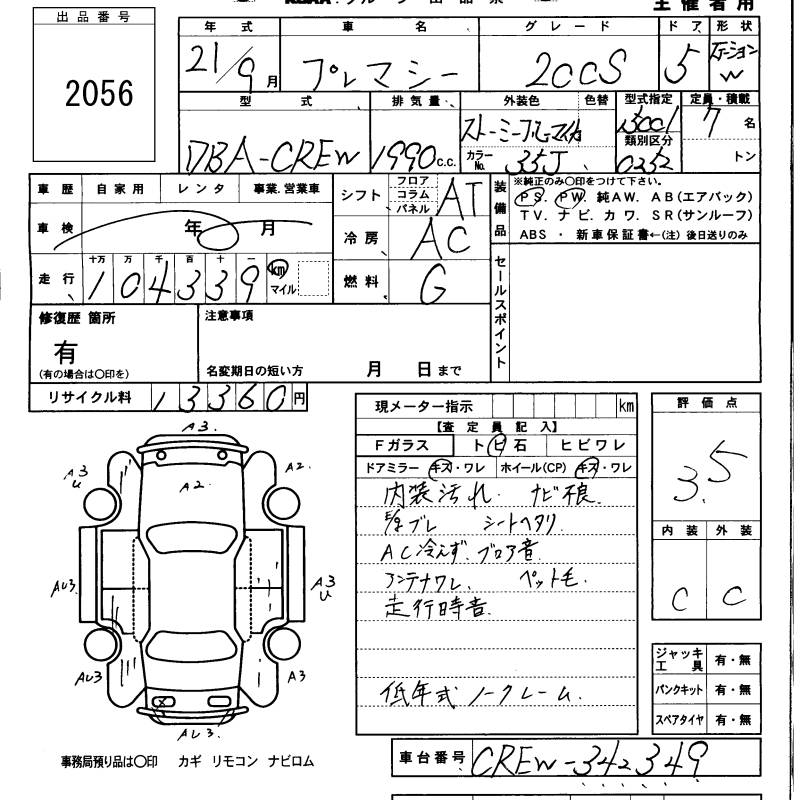 出品番号
2056
主催者用
年式 車名 グレード ドア 形状
21/9月 プレマシー 20CS 5 ステーションW
型式 排気量 外装色 色替 型式指定 定員・積載
DBA-CREW 1990c.c. ストーミーブルーマイカ 15001 7名
カラーNo. 35J 類別区分 0252 トン
車歴 自家用 レンタ 事業.営業車
車検 年 月
走行 十万 万 千 百 十 一
104339 km マイル
シフト フロア コラム パネル AT
冷房 AC
燃料 G
装備品
※純正のみ○印をつけて下さい。
PS. PW. 純AW. AB(エアバック)
TV. ナビ. カワ. SR(サンルーフ)
ABS ・ 新車保証書←(注) 後日送りのみ
セールスポイント
修復歴 箇所
有
(有の場合は○印を)
注意事項
名変期日の短い方 月 日まで
リサイクル料 13360円
A3.
A3
U
A2.
A2.
AU3
A3
U
AU3
A3
AU3.
現メーター指示 km
【査定員記入】
Fガラス トビ石 ヒビワレ
ドアミラー キズ・ワレ ホイール(CP) キズ・ワレ
内装汚れ. ナビ不良.
E/gブレ シートヘタリ
AC冷えず.ブロア音
アンテナワレ. ペット毛.
走行時音.
低年式 ノークレーム.
評価点
3.5
内装 外装
C C
ジャッキ工具 有・無
パンクキット 有・無
スペアタイヤ 有・無
事務局預り品は○印 カギ リモコン ナビロム
車台番号 CREW-342349